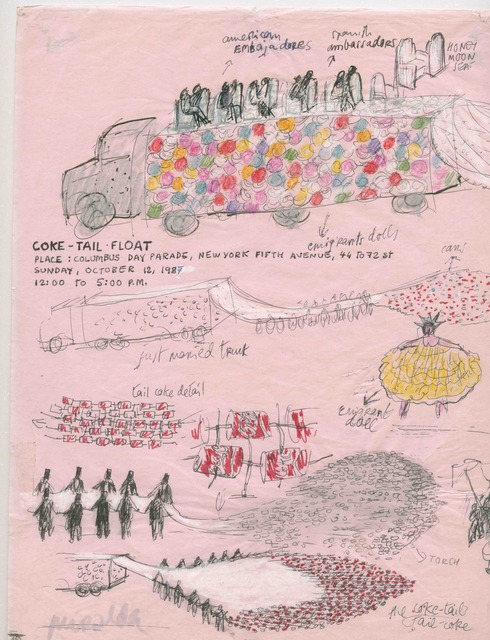 american
EMBAJADORES
spanish
ambassadors
HONEY
MOON
SEAT
COKE-TAIL·FLOAT
emigrants dolls
PLACE: COLUMBUS DAY PARADE, NEW YORK FIFTH AVENUE, 44 TO 72 St
SUNDAY, OCTOBER 12, 1987
12:00 TO 5:00 P.M.
cans
just married truck
tail coke detail
Emigrant
doll
TORCH
the coke-tail
tail-coke
miralda